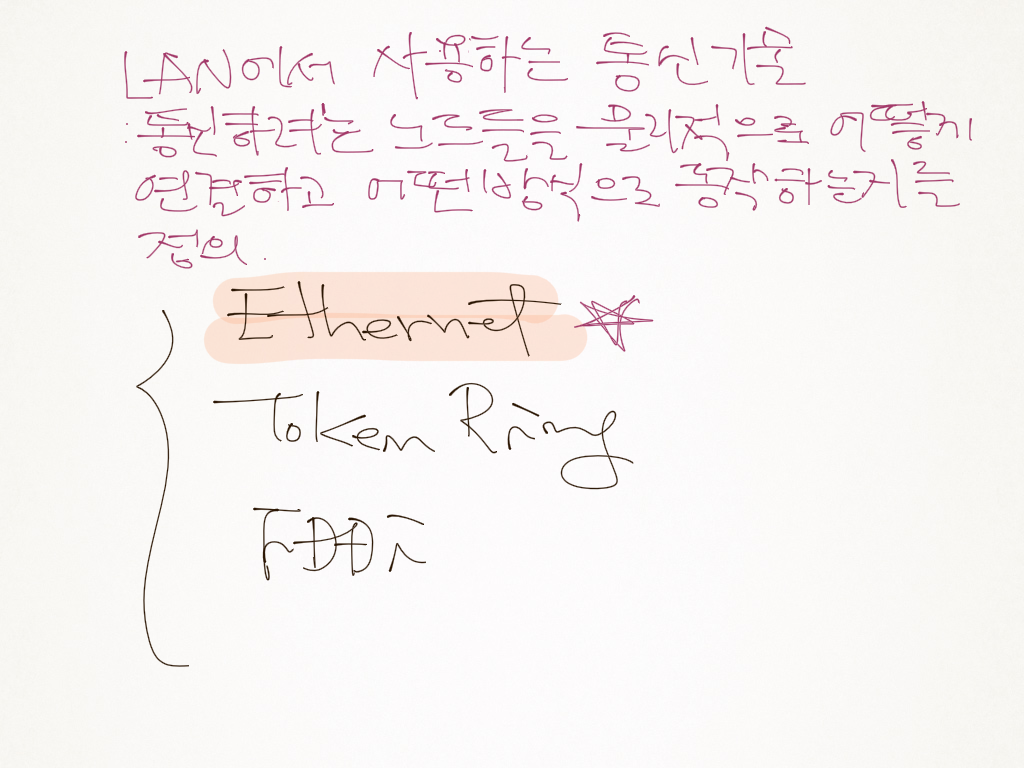 LAN에서 사용하는 통신기술
: 통신하려는 노드들을 물리적으로 어떻게
연결하고 어떤방식으로 동작하는지를
정의.
Ethernet
Token Ring
FDDi